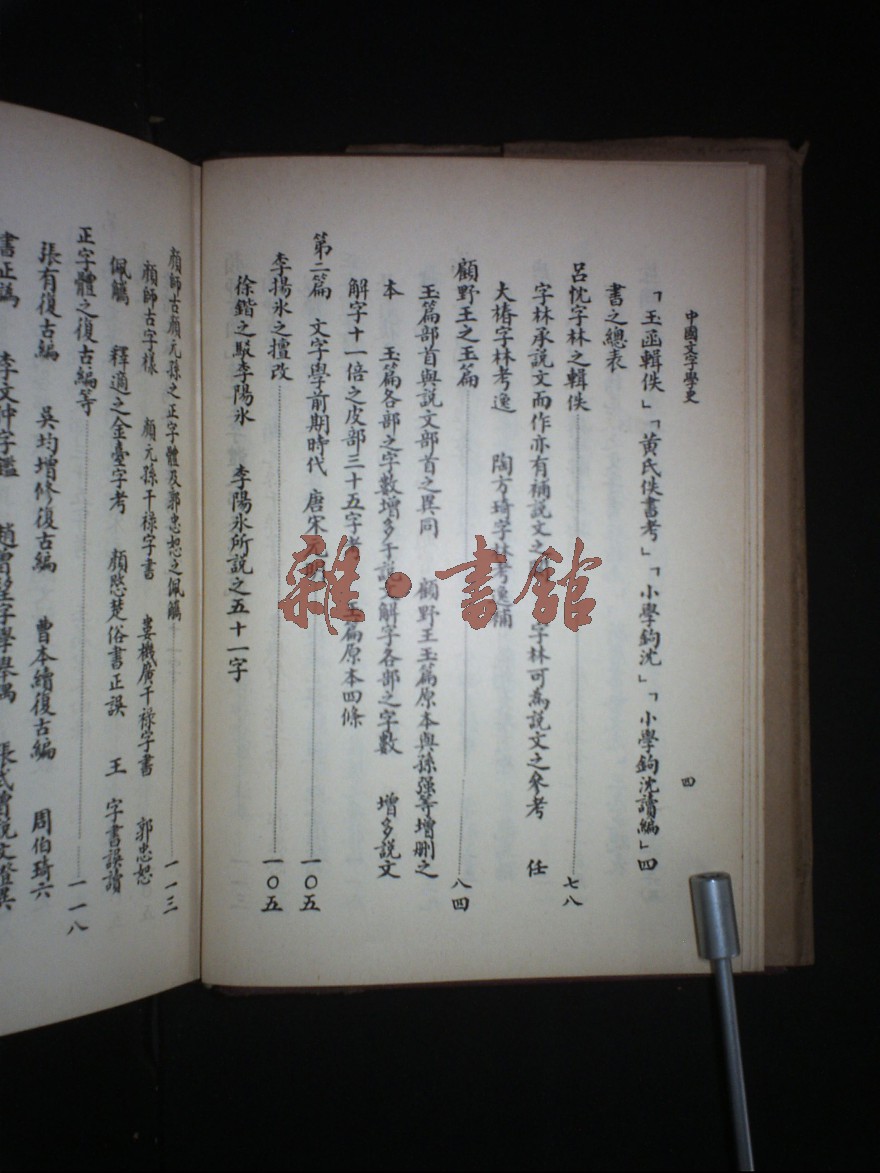 中國文字學史
四
「玉函輯佚」「黄氏佚書考」「小學鉤沈」「小學鉤沈讀編」四
書之總表
呂忱字林之輯佚 七八
字林承說文而作亦有補說文之 字林可為說文之參考 任
大椿字林考逸 陶方琦字林考逸補
顧野王之玉篇 八四
玉篇部首與說文部首之異同 顧野王玉篇原本與孫強等增刪之
本 玉篇各部之字數增多于說文解字各部之字數 增多說文
解字十一倍之皮部三十五字考 玉篇原本四條
第二篇 文字學前期時代 唐宋元明 一〇五
李揚氷之擅改 一〇五
徐鍇之駁李陽氷 李陽氷所說之五十一字
顏師古顏元孫之正字體及郭忠恕之佩觿 一一三
顏師古字樣 顏元孫干祿字書 婁機廣干祿字書 郭忠恕
佩觿 釋適之金臺字考 顏愍楚俗書正誤 王 字書誤讀
正字體之復古編等 一一八
張有復古編 吳均增修復古編 曹本續復古編 周伯琦六
書正譌 李文仲字鑑 趙曾望字學舉隅 張式曾說文證異
雜·書館